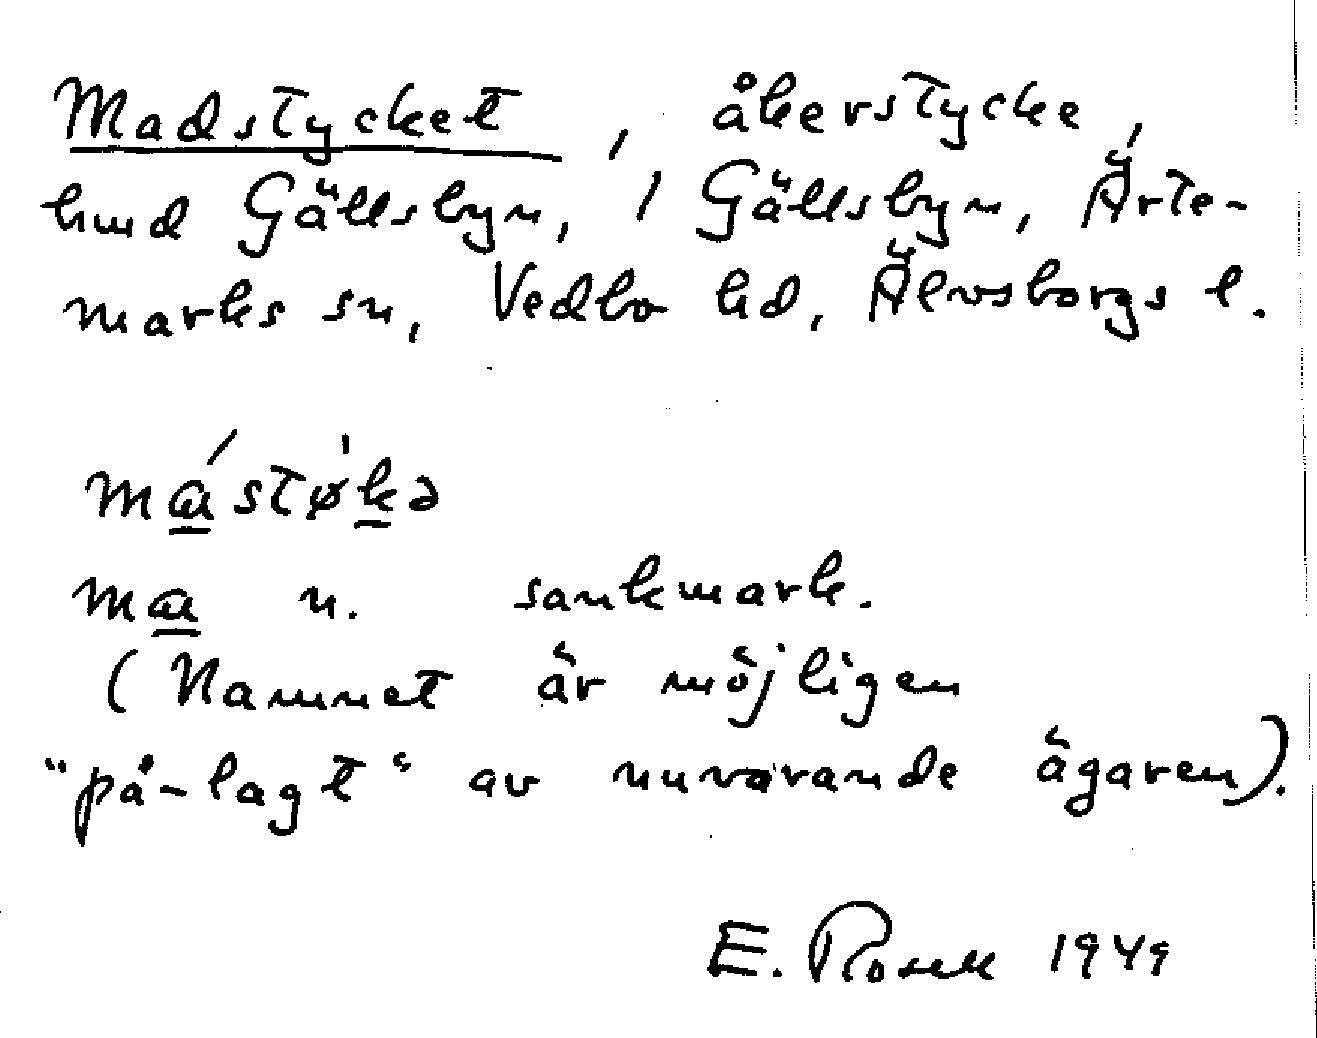 Madstycket, åkerstycke,
hmd Gällsbyn, 1 Gällsbyn, Ärte-
marks sn, Vedbo hd, Älvsborgs l.
mástøkə
ma n. sankmark.
(Namnet är möjligen
"på-lagt" av nuvarande ägaren).
E. Rosell 1949